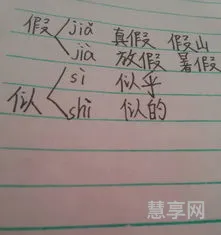 假 jiǎ 真假 假山
jià 放假 暑假
似 sì 似乎
shì 似的
慧享网